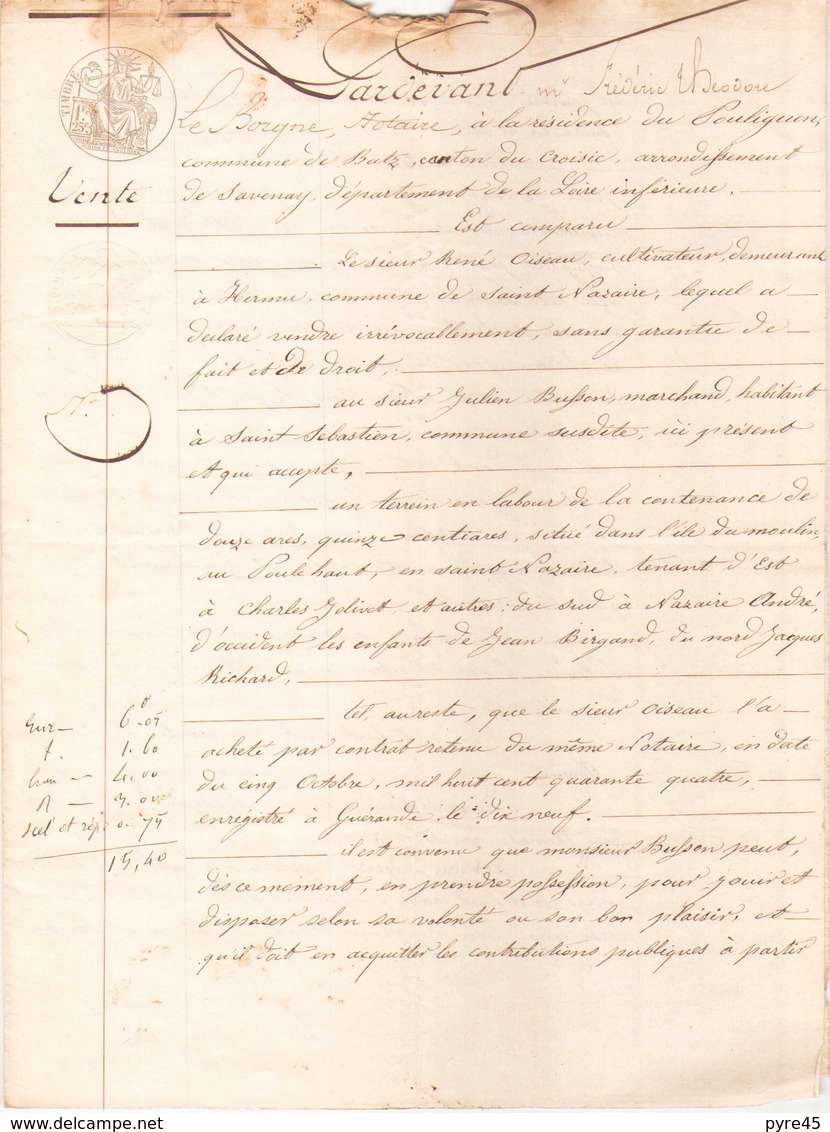 Pardevant Mᵉ Frédéric Théodore
TIMBRE
Le Borgne, Notaire, à la résidence du Pouliguen,
commune de Batz, canton du Croisic, arrondissement
Vente
de Savenay, département de la Loire inférieure.
Est comparu
Le sieur René Oiseau, cultivateur, demeurant
à Hermu, commune de Saint Nazaire, lequel a
déclaré vendre irrévocablement, sans garantie de
fait et de droit,
au sieur Julien Busson, marchand, habitant
à Saint Sébastien, commune susdite, ici présent
et qui accepte,
un terrein en labour de la contenance de
douze ares, quinze centiares, situé dans l'île du moulin
au Poulehaut, en Saint Nazaire, tenant d'Est
à Charles Jolivet et autres; du sud à Nazaire André,
d'occident les enfants de Jean Birgand, du nord Jacques
Richard,
tel, au reste, que le sieur Oiseau l'a
acheté par contrat retenu du même Notaire, en date
du cinq Octobre, mil huit cent quarante quatre,
enregistré à Guérande le dix neuf.
il est convenu que monsieur Busson peut,
dès ce moment, en prendre possession, pour jouir et
disposer selon sa volonté ou son bon plaisir, et
qu'il doit en acquitter les contributions publiques à partir
6.05
1.60
4.00
3.00
et rép. 0.75
15,40
delcampe.net
pyre45